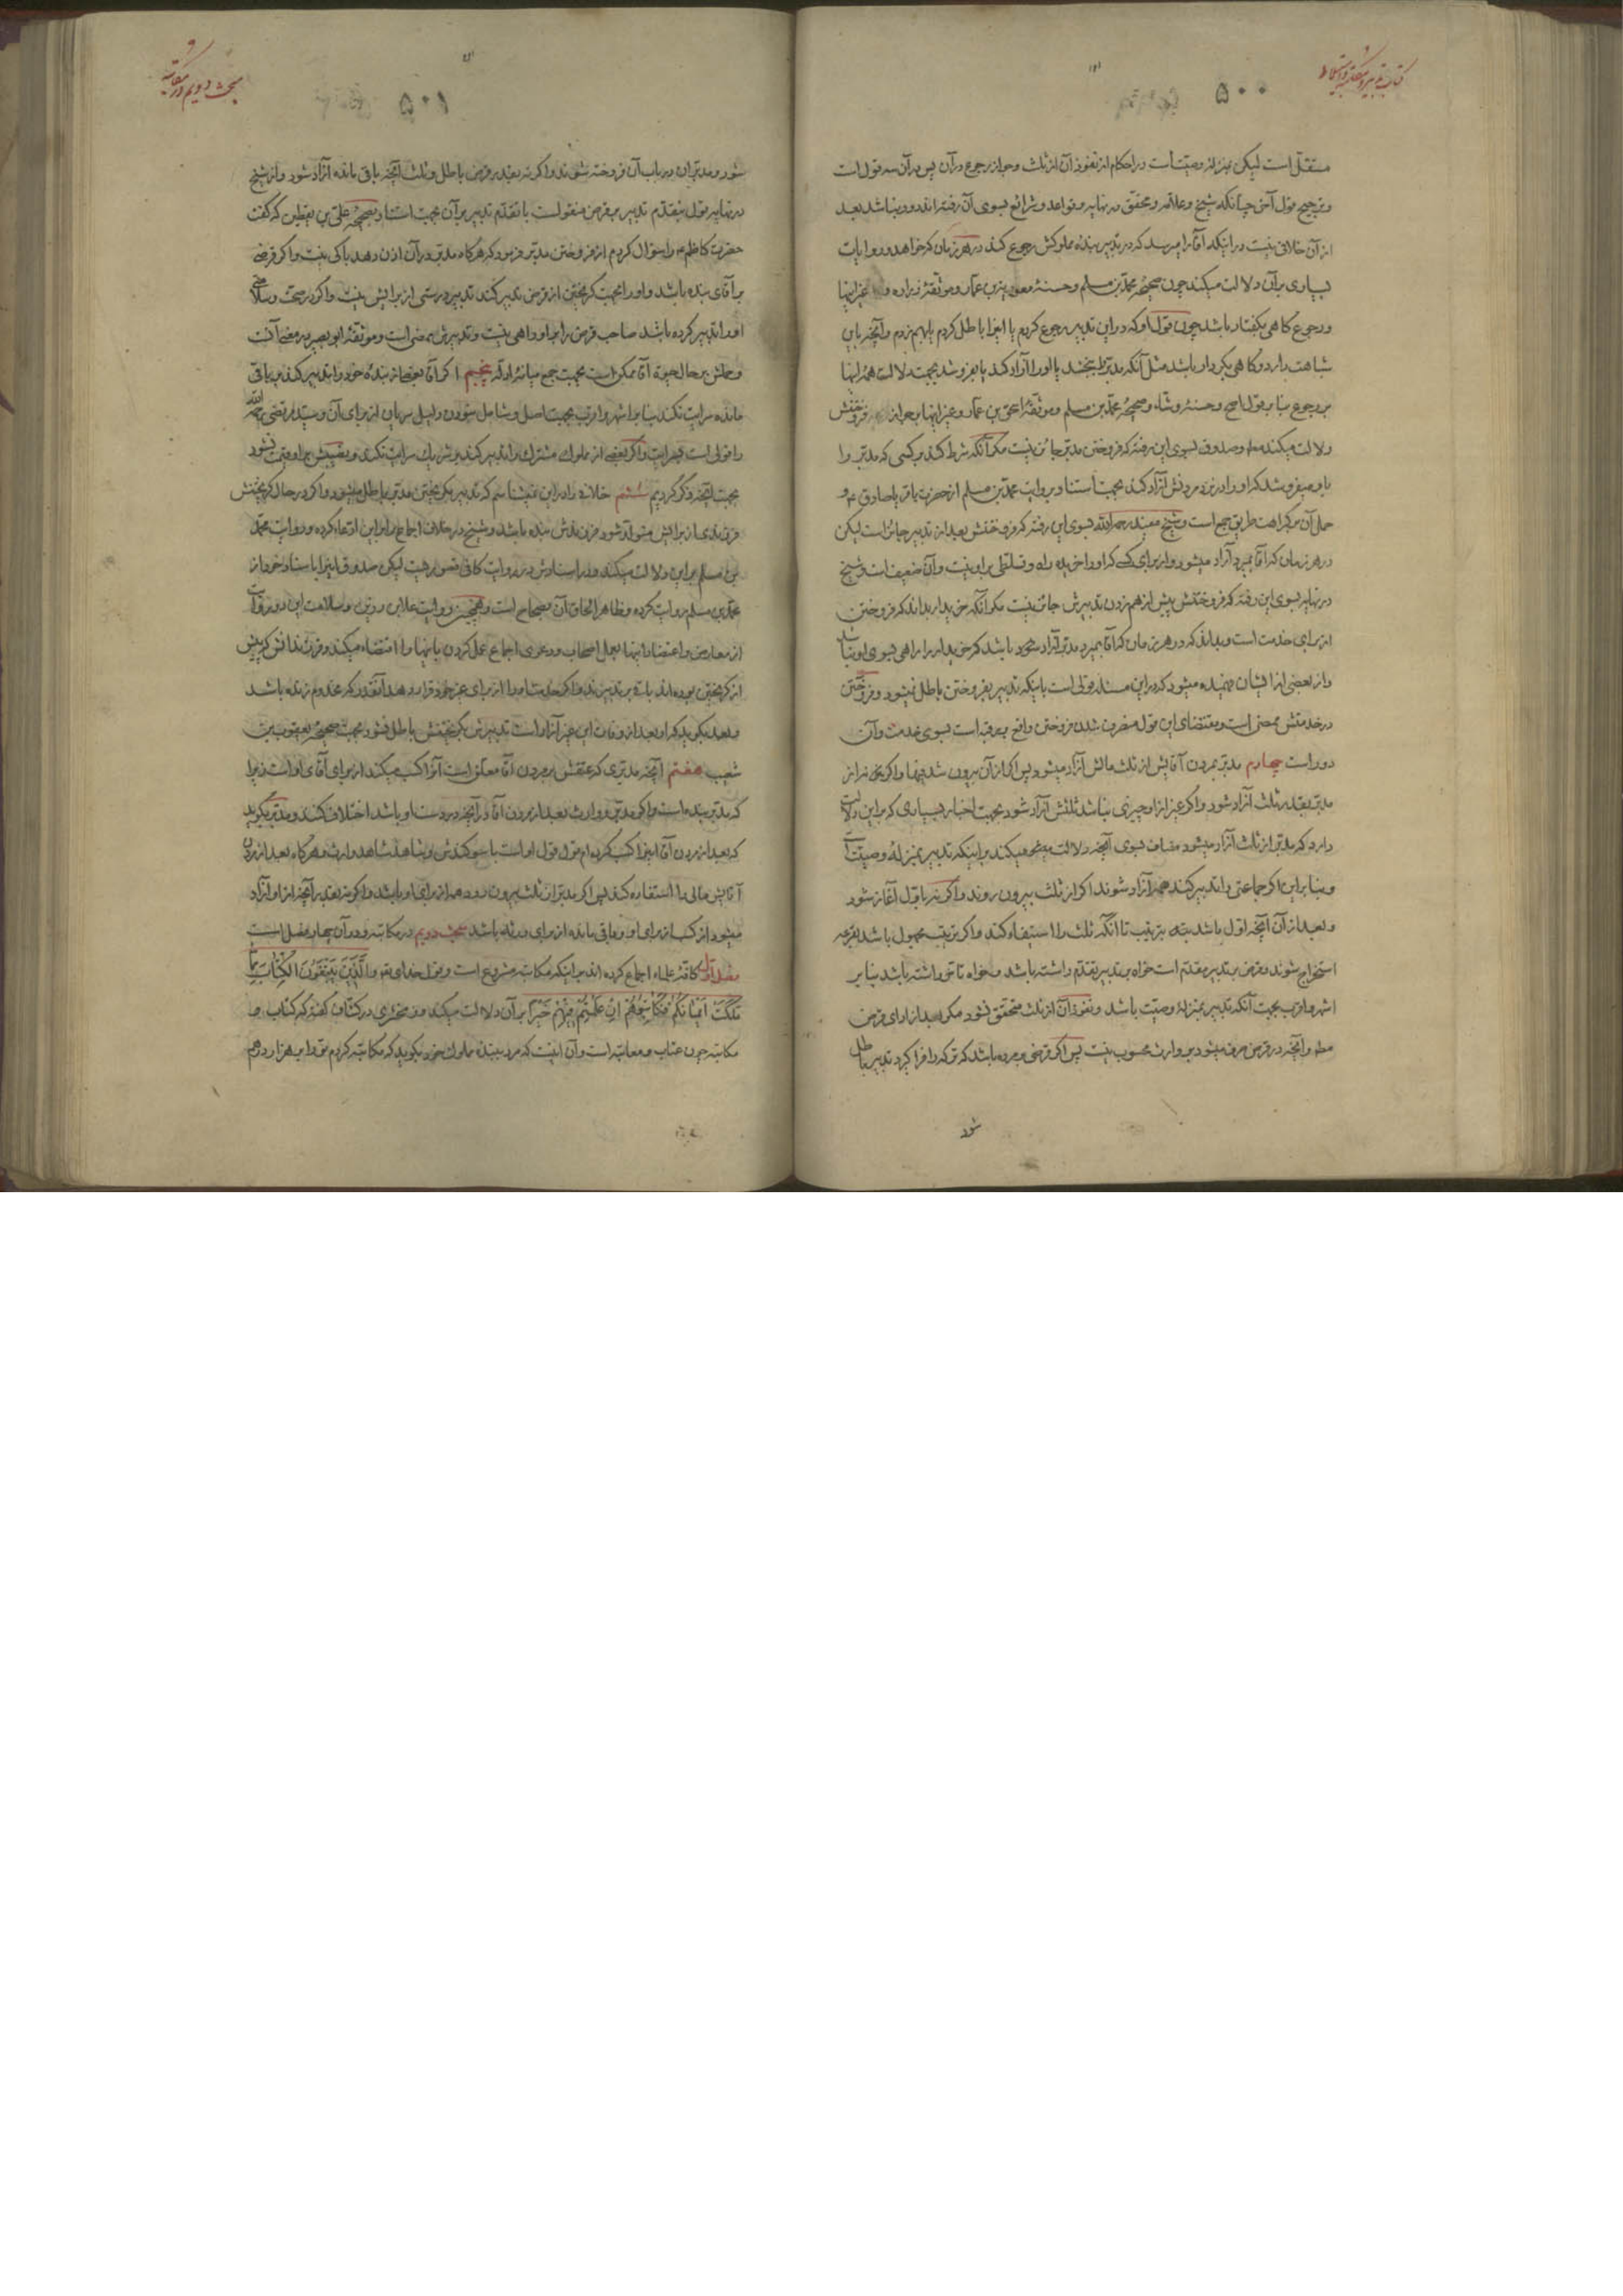 کتاب تدبیر و مکاتبه و استیلاد
۵۰۰
مستقل است لیکن بمنزله وصیت است در احکام از نفوذ آن از ثلث و جواز رجوع در آن پس در آن سه قول است
و ترجیح قول آخر چنانکه شیخ و علامه و محقق در نهایه و قواعد و شرایع بسوی آن رفته‌اند و بنا شد بعد
از آن خلافی نیست در اینکه آقا را میرسد که در تدبیر بنده مملوکش رجوع کند در هر زمان که خواهد و روایات
بسیاری بر آن دلالت میکند چون صحیحه محمد بن مسلم و حسنه معویة بن عمار و موثقه زراره و غیر اینها
و رجوع گاهی بگفتار باشد چون قول او که در این تدبیر رجوع کردم یا اینرا باطل کردم یا بهم زدم و آنچه باین
شباهت دارد و گاهی بکردار باشد مثل آنکه مدبر را ببخشد یا او را آزاد کند یا بفروشد بجهت دلالت همه اینها
بر رجوع بنا بر قول اصح و حسنه وشاء و صحیحه محمد بن مسلم و موثقه اسحق بن عمار و غیر اینها بر جواز فروختنش
دلالت میکند و صدوق بسوی این رفته که فروختن مدبر جائز نیست مگر آنکه شرط کند بر کسی که مدبر را
باو میفروشد که او را در نزد مردنش آزاد کند بجهت استناد بروایت محمد بن مسلم از حضرت باقر یا صادق ع و
حمل آن بر کراهت طریق جمع است و شیخ مفید رحمه الله بسوی این رفته که فروختنش بعد از تدبیر جائز است لیکن
در هر زمان که آقا بمیرد آزاد میشود و از برای کسی که او را خریده راه و تسلطی بر او نیست و آن ضعیف است و شیخ
در نهایه بسوی این رفته که فروختنش پیش از بهم زدن تدبیرش جائز نیست مگر آنکه خریدار بداند که فروختن
از برای خدمت است و بداند که در هر زمان که آقا بمیرد مدبر آزاد میشود باشد که خریدار را راهی بسوی او نباشد
و از بعضی از ایشان فهمیده میشود که در این مسئله قولی است باینکه تدبیر بفروختن باطل نمیشود و فروختن
در خدمتش ممضی است و مقتضای این قول منصرف شدن فروختن واقع بر رقبه است بسوی خدمت و آن
دور است چهارم مدبر بمردن آقایش از ثلث مالش آزاد میشود پس اگر از آن بیرون شد فبها و اگر نه از
مدبر بقدر ثلث آزاد شود و اگر غیر از او چیزی نباشد ثلثش آزاد شود بجهت اخبار بسیاری که بر این دلالت
دارد که مدبر از ثلث آزاد میشود مضاف بسوی آنچه دلالت میکند بر اینکه تدبیر بمنزله وصیت است
و بنا بر این اگر جماعتی را تدبیر کند همه آزاد شوند اگر از ثلث بیرون روند و اگر نه باول آغاز شود
و بعد از آن آنچه اول باشد بترتیب تا آنکه ثلث را استیفاء کند و اگر ترتیب مجهول باشد بقرعه
استخراج شوند و قرض بر تدبیر مقدم است خواه بر تدبیر تقدم داشته باشد و خواه تاخر داشته باشد بنا بر
اشهر و اقرب بجهت آنکه تدبیر بمنزله وصیت باشد و نفوذ آن از ثلث متحقق نشود مگر بعد از ادای قرض
و آنچه در قرض صرف میشود بر وارث محسوب نیست پس اگر قرضی بوده باشد که ترکه را فرا گیرد تدبیر باطل
شود
مبحث دویم در مکاتبه
۵۰۱
شود و مدبران در باب آن فروخته شوند و اگر نه بقدر قرض باطل و ثلث آنچه باقی مانده آزاد شود و از شیخ
در نهایه قول بتقدم تدبیر بر قرض منقول است با تقدم تدبیر بر آن بجهت استناد بصحیحه علی بن یقطین که گفت
حضرت کاظم ع را سؤال کردم از فروختن مدبر فرمود که هر گاه مدبر در آن اذن دهد باکی نیست و اگر قرضی
بر آقای بنده باشد و او را بجهت گریختن از قرض تدبیر کند تدبیر درستی از برایش نیست و اگر در صحت و سلامتی
او را تدبیر کرده باشد صاحب قرض را بر او راهی نیست و تدبیرش ممضی است و موثقه ابو بصیر در معنی آنست
و حملش بر حال حیوة آقا ممکن است بجهت جمع میانه ادله پنجم اگر آقا بعضی از بنده خود را تدبیر کند بر باقی
مانده سرایت نکند بنا بر اشهر و اقرب بجهت اصل و شامل نبودن دلیل سریان از برای آن و سید مرتضی رحمه الله
را قولی است بسرایت و اگر بعضی از مملوک مشترک را تدبیر کند بر شریک سرایت نکند و نصیبش بر او قیمت نشود
بجهت آنچه ذکر کردیم ششم خلافی را در این نمیشناسم که تدبیر بگریختن مدبر باطل میشود و اگر در حال گریختنش
فرزندی از برایش متولد شود فرزندش بنده باشد و شیخ در خلاف اجماع بر این ادعاء کرده و روایت محمد
بن مسلم بر این دلالت میکند و در اسنادش در روایت کافی قصور هست لیکن صدوق اینرا باسناد خود از
محمد بن مسلم روایت کرده و ظاهر الحاق آن بصحاح است و همچنین روایت علاء بن رزین و سلامت این دو روایت
از معارض و اعتضاد اینها بعمل اصحاب و دعوی اجماع عمل کردن باینها را اقتضاء میکند و فرزندانش که پیش
از گریختن بوده‌اند بر تدبیرند و اگر خدمت او را از برای غیر خود قرار دهد آنقدر که مخدوم زنده باشد
و بعد بگوید که او بعد از وفات این غیر آزاد است تدبیرش بگریختنش باطل نشود بجهت صحیحه یعقوب بن
شعیب هفتم آنچه مدبری که عتقش بر مردن آقا معلق است آنرا کسب میکند از برای آقای او است زیرا
که مدبر بنده است و اگر مدبر و وارث بعد از مردن آقا در آنچه در دست او باشد اختلاف کنند و مدبر بگوید
که بعد از مردن آقا اینرا کسب کرده‌ام قول قول او است با سوگندش و شاهد شاهد وارث و هر گاه بعد از مردن
آقایش مالی را استفاده کند پس اگر مدبر از ثلث بیرون رود همه از برای او باشد و اگر نه بقدر آنچه از او آزاد
میشود از کسب از برای او و باقی مانده از برای ورثه باشد مبحث دویم در مکاتبه و در آن چهار فصل است
فصل اول کافه علماء اجماع کرده‌اند بر اینکه مکاتبه مشروع است و قول خدای تع وَالَّذِينَ يَبْتَغُونَ الْكِتَابَ مِمَّا
مَلَكَتْ أَيْمَانُكُمْ فَكَاتِبُوهُمْ إِنْ عَلِمْتُمْ فِيهِمْ خَيْرًا بر آن دلالت میکند و زمخشری در کشاف گفته که کتاب و
مکاتبه چون عتاب و معاتبه است و آن اینست که مرد ببنده مملوک خود بگوید که مکاتبه کردم تو را بر هزار درهم